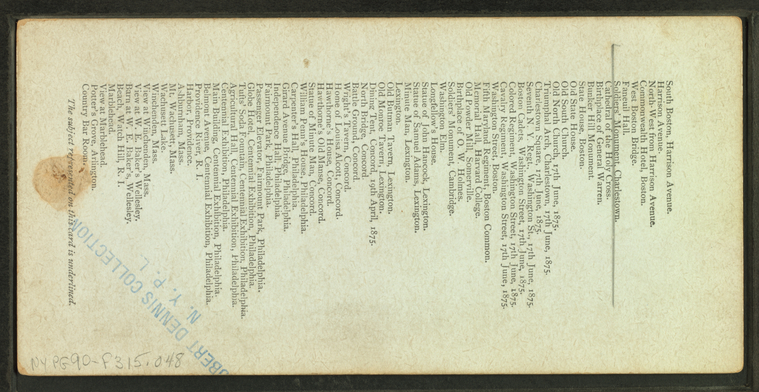 South Boston, Harrison Avenue.
Harrison Avenue.
North-West from Harrison Avenue.
Commonwealth Hotel, Boston.
West Boston Bridge.
Faneuil Hall.
Soldiers' Monument, Charlestown.
Cathedral of the Holy Cross.
Birthplace of General Warren.
Bunker Hill Monument.
State House, Boston.
Old State House.
Old South Church.
Old North Church, 17th June, 1875.
Triumphal Arch, Charlestown, 17th June, 1875.
Charlestown Square, 17th June, 1875.
Seventh N. Y. Regt., Washington St., 17th June, 1875.
Boston Cadets, Washington Street, 17th June, 1875.
Colored Regiment, Washington Street, 17th June, 1875.
Cavalry Regiment, Washington Street, 17th June, 1875.
Washington Street, Boston.
Fifth Maryland Regiment, Boston Common.
Memorial Hall, Harvard College.
Old Powder Mill, Somerville.
Birthplace of O. W. Holmes.
Soldiers' Monument, Cambridge.
Washington Elm.
Longfellow's House.
Statue of John Hancock, Lexington.
Statue of Samuel Adams, Lexington.
Minute Man, Lexington.
Lexington.
Old Buckman Tavern, Lexington.
Old Monument, Lexington.
Dining Tent, Concord, 19th April, 1875.
North Bridge, Concord.
Battle Ground, Concord.
Wright's Tavern, Concord.
Home of Louisa Alcott, Concord.
Hawthorne's House, Concord.
Hawthorne's Old Manse, Concord.
Statue of Minute Man, Concord.
William Penn's House, Philadelphia.
Carpenter's Hall, Philadelphia.
Girard Avenue Bridge, Philadelphia.
Independence Hall, Philadelphia.
Fairmount Park, Philadelphia.
Passenger Elevator, Fairmount Park, Philadelphia.
Globe Hotel, Centennial Exhibition, Philadelphia.
Tufts' Soda Fountain, Centennial Exhibition, Philadelphia.
Agricultural Hall, Centennial Exhibition, Philadelphia.
Centennial Grounds, Philadelphia.
Main Building, Centennial Exhibition, Philadelphia.
Belmont Avenue, Centennial Exhibition, Philadelphia.
Providence.
Harbor, Providence.
Ashburnham, Mass.
Mt. Wachusett, Mass.
Wachusett Lake.
Winchendon, Mass.
View at Winchendon, Mass.
View at W. E. Baker's Wellesley.
Bears at W. E. Baker's, Wellesley.
Beach, Watch Hill, R. I.
Marblehead.
View at Marblehead.
Porter's Grove, Arlington.
Country Bar Room.
The subject represented on this card is underlined.
ROBERT DENNIS COLLECTION
N. Y. P. L.
NYPG90-F315.048